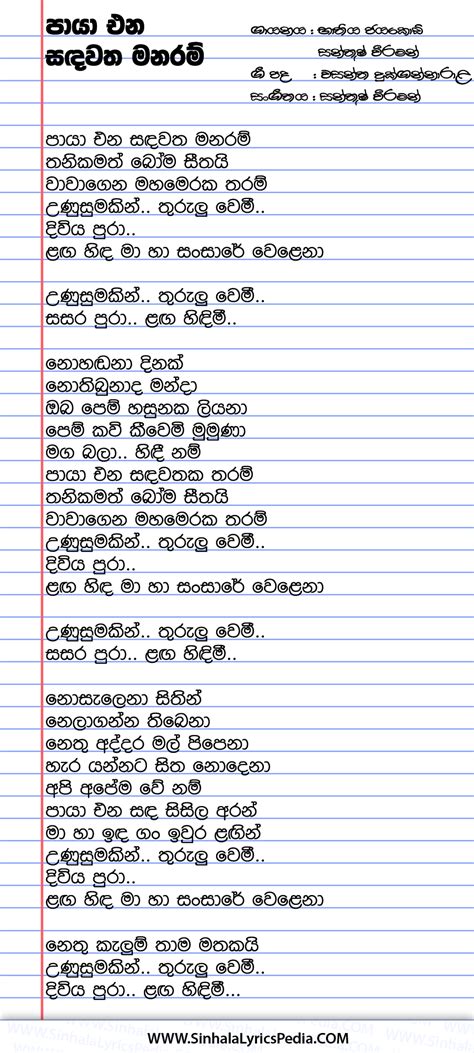 පායා එන
සඳවත මනරම්
ගායනය : භාතිය ජයකොඩි
සන්තුෂ් වීරමන්
ගී පද : වසන්ත දුක්ගන්නාරාළ
සංගීතය : සන්තුෂ් වීරමන්
පායා එන සඳවත මනරම්
තනිකමත් බෝම සීතයි
වාවාගෙන මහමෙරක තරම්
උණුසුමකින්.. තුරුලු වෙමී..
දිවිය පුරා..
ළඟ හිඳ මා හා සංසාරේ වෙළෙනා
උණුසුමකින්.. තුරුලු වෙමී..
සසර පුරා.. ළඟ හිඳිමී..
නොහඬනා දිනක්
නොතිබුනාද මන්දා
ඔබ පෙම් හසුනක ලියනා
පෙම් කවි කීවෙමි මුමුණා
මග බලා.. හිඳී නම්
පායා එන සඳවතක තරම්
තනිකමත් බෝම සීතයි
වාවාගෙන මහමෙරක තරම්
උණුසුමකින්.. තුරුලු වෙමී..
දිවිය පුරා..
ළඟ හිඳ මා හා සංසාරේ වෙළෙනා
උණුසුමකින්.. තුරුලු වෙමී..
සසර පුරා.. ළඟ හිඳිමී..
නොසැලෙනා සිතින්
නෙලාගන්න තිබෙනා
නෙතු අද්දර මල් පිපෙනා
හැර යන්නට සිත නොදෙනා
අපි අපේම වේ නම්
පායා එන සඳ සිසිල අරන්
මා හා ඉඳ ගං ඉවුර ළඟින්
උණුසුමකින්.. තුරුලු වෙමී..
දිවිය පුරා..
ළඟ හිඳ මා හා සංසාරේ වෙළෙනා
නෙතු කැලුම් තාම මතකයි
උණුසුමකින්.. තුරුලු වෙමී..
දිවිය පුරා.. ළඟ හිඳිමී...
www.SinhalaLyricsPedia.COM